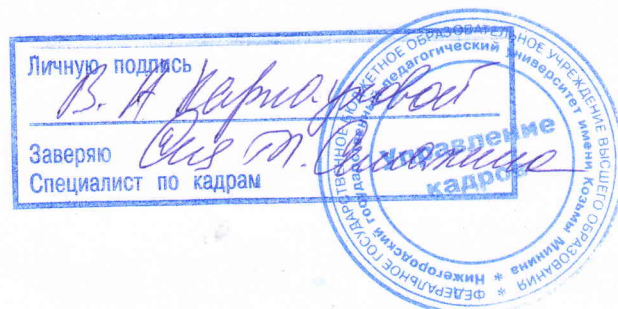 Личную подпись
В. Н Карпауховой
Заверяю
Специалист по кадрам
ФЕДЕРАЛЬНОЕ ГОСУДАРСТВЕННОЕ БЮДЖЕТНОЕ ОБРАЗОВАТЕЛЬНОЕ УЧРЕЖДЕНИЕ ВЫСШЕГО ОБРАЗОВАНИЯ *
Нижегородский государственный педагогический университет имени Козьмы Минина *
Управление
кадров